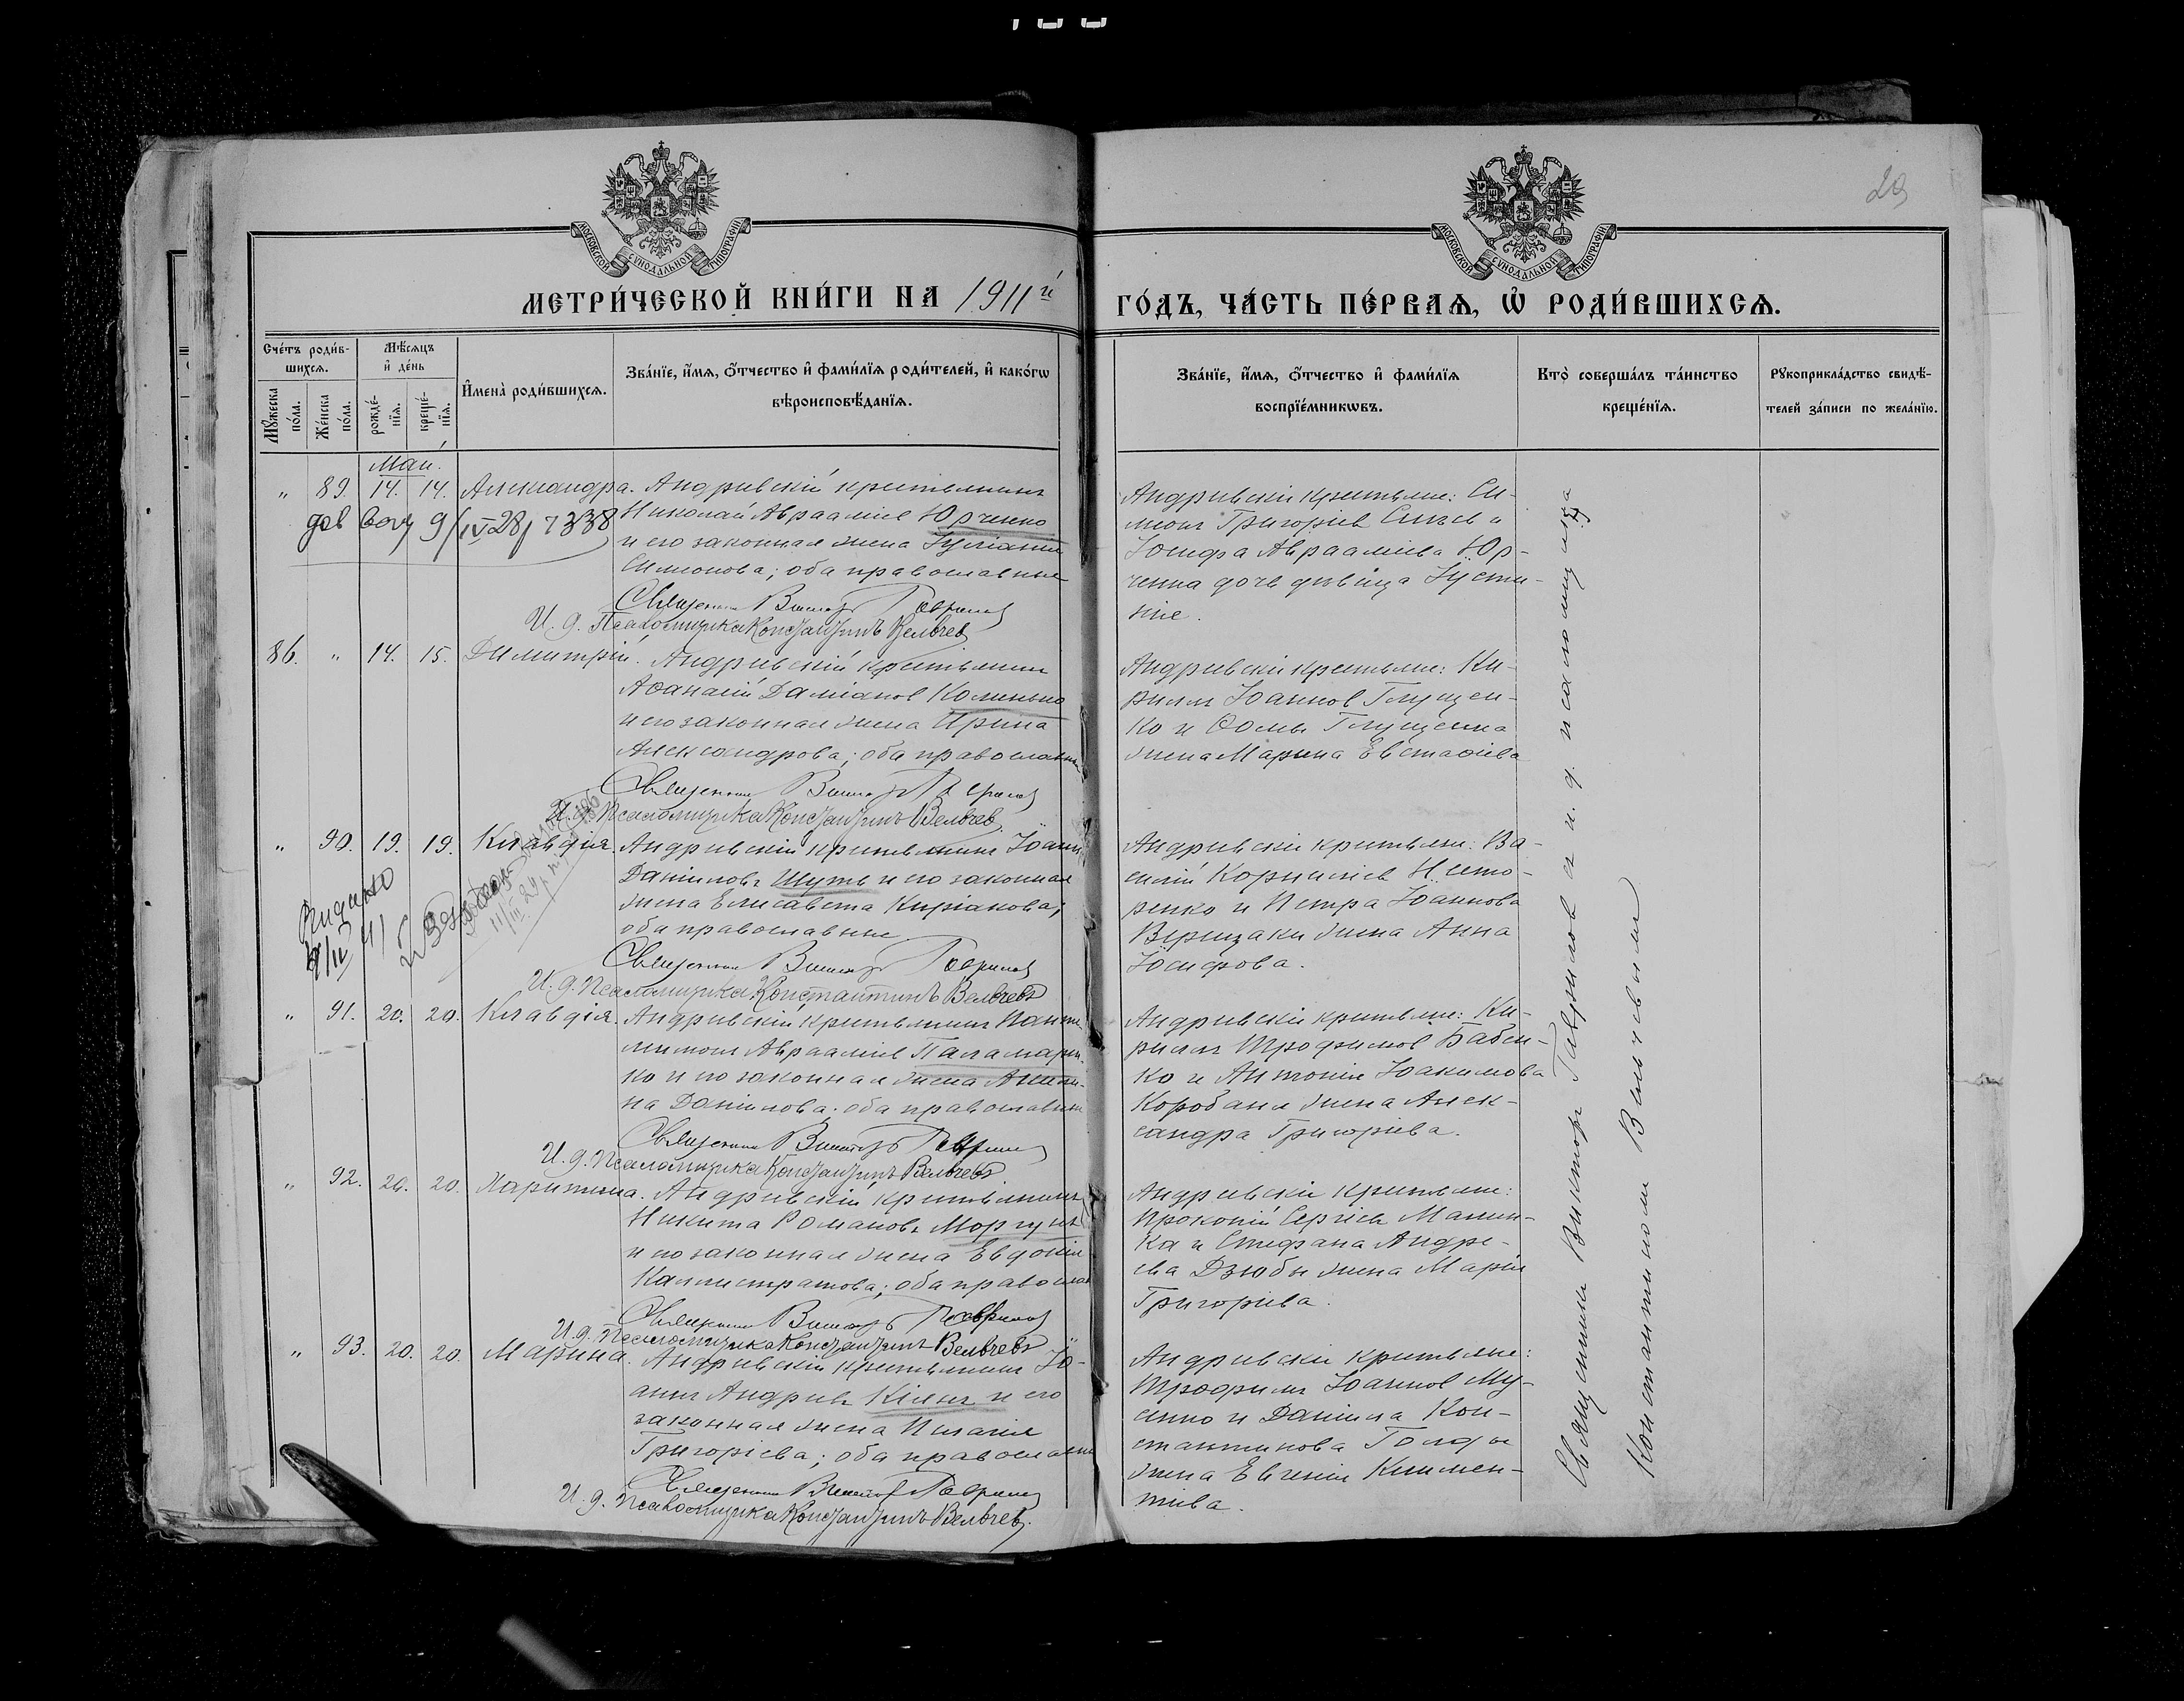 29
МОСКОВСКОЙ СУНОДАЛЬНОЙ ТИПОГРАФІИ
МОСКОВСКОЙ СУНОДАЛЬНОЙ ТИПОГРАФІИ
МЕТРИ́ЧЕСКОЙ КНИ́ГИ НА 1911й
ГО́ДЪ, ЧА́СТЬ ПЕ́РВАЯ, Ѽ РОДИ́ВШИХСЯ.
Сче́тъ роди́в-
шихся.
Мꙋжеска по́ла.
Же́нска по́ла.
Мѣ́сяцъ
и҆ де́нь
рожде́-
нїя.
креще́-
нїя.
И҆мена̀ роди́вшихся.
Зва́нїе, и҆́мя, ѻ҆́тчество и҆ фами́лїя роди́телей, и҆ како́гѡ
вѣроисповѣ́данїя.
Зва́нїе, и҆́мя, ѻ҆́тчество и҆ фами́лїя
воспрїе́мникѡвъ.
Кто̀ соверша́лъ та́инство
креще́нїя.
Рꙋкоприкла́дство свидѣ́-
телей за́писи по жела́нїю.
Май.
" 89. 14. 14. Александра. Андреевскій крестьянинъ
Николай Авраамiев Юрченко
и его законная жена Іуліанія
Симеонова; оба православные
Священникъ Викторъ Гаврилов
И. д. Псаломщика Константинъ Вельчев
Андреевскіе крестьяне: Си-
меонъ Григоріев Сычев и
Іосифа Авраамiева Юр-
ченка дочь девица Іусти-
нія.
86. " 14. 15. Димитрій. Андреевскій крестьянинъ
Аѳанасій Даміанов Коленько
и его законная жена Ирина
Александрова; оба православные
Священникъ Викторъ Гаврилов
И. д. Псаломщика Константинъ Вельчев.
Андреевскіе крестьяне: Ки-
риллъ Іоаннов Глущен-
ко и Ѳомы Глущенка
жена Марина Евстаѳіева
" 90. 19. 19. Клавдія. Андреевскій крестьянинъ Іоаннъ
Даніиловъ Шуть и его законная
жена Елисавета Киріакова;
оба православные
Священникъ Викторъ Гаврилов
И. д. Псаломщика Константинъ Вельчевъ
Андреевскіе крестьяне: Ва-
силій Корниліев Несте-
ренко и Петра Іоаннова
жена Анна
Іосифова.
" 91. 20. 20. Клавдія. Андреевскій крестьянинъ Панте-
леимонъ Авраамiев Паламарен-
ко и его законная жена
Даніилова; оба православные
Священникъ Викторъ Гаврилов
И. д. Псаломщика Константинъ Вельчевъ
Андреевскіе крестьяне: Ки-
риллъ Трофимов Бабен-
ко и Антонія Іоакимова
Коробаня жена Алек-
сандра Григоріева.
" 92. 20. 20. Харитина. Андреевскій крестьянинъ
Никита Романовъ Моргунъ
и его законная жена Евдокія
Каллистратова; оба православ
Священникъ Викторъ Гаврилов
И. д. Псаломщика Константинъ Вельчевъ
Андреевскіе крестьяне:
Прокопій Сергіев
и Стефана Андре-
ева Дзюбы жена Марія
Григоріева.
" 93. 20. 20. Марина. Андреевскій крестьянинъ Іо-
аннъ Андреев Кіянъ и его
законная жена Пелагія
Григоріева; оба православные
Священникъ Викторъ Гаврилов
И. д. Псаломщика Константинъ Вельчев.
Андреевскіе крестьяне:
Трофимъ Іоаннов Му-
сенко и Даніила Кон-
стантинова
жена Евгенія Климен-
тіева.
Священникъ Викторъ Гаврилов с и. д. псаломщика
Константином Вельчевым